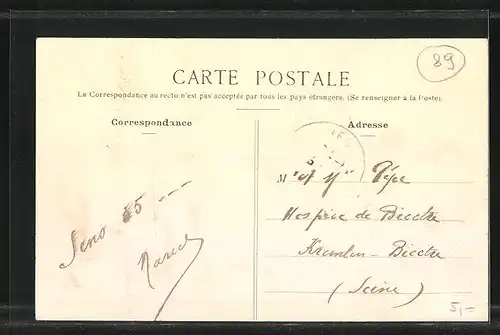 89
CARTE POSTALE
La Correspondance au recto n'est pas acceptée par tous les pays étrangers. (Se renseigner à la Poste)
Correspondance
Adresse
M
Pépe
Hospice de Bicêtre
Kremlin-Bicêtre
(Seine)
Marcel
5,=